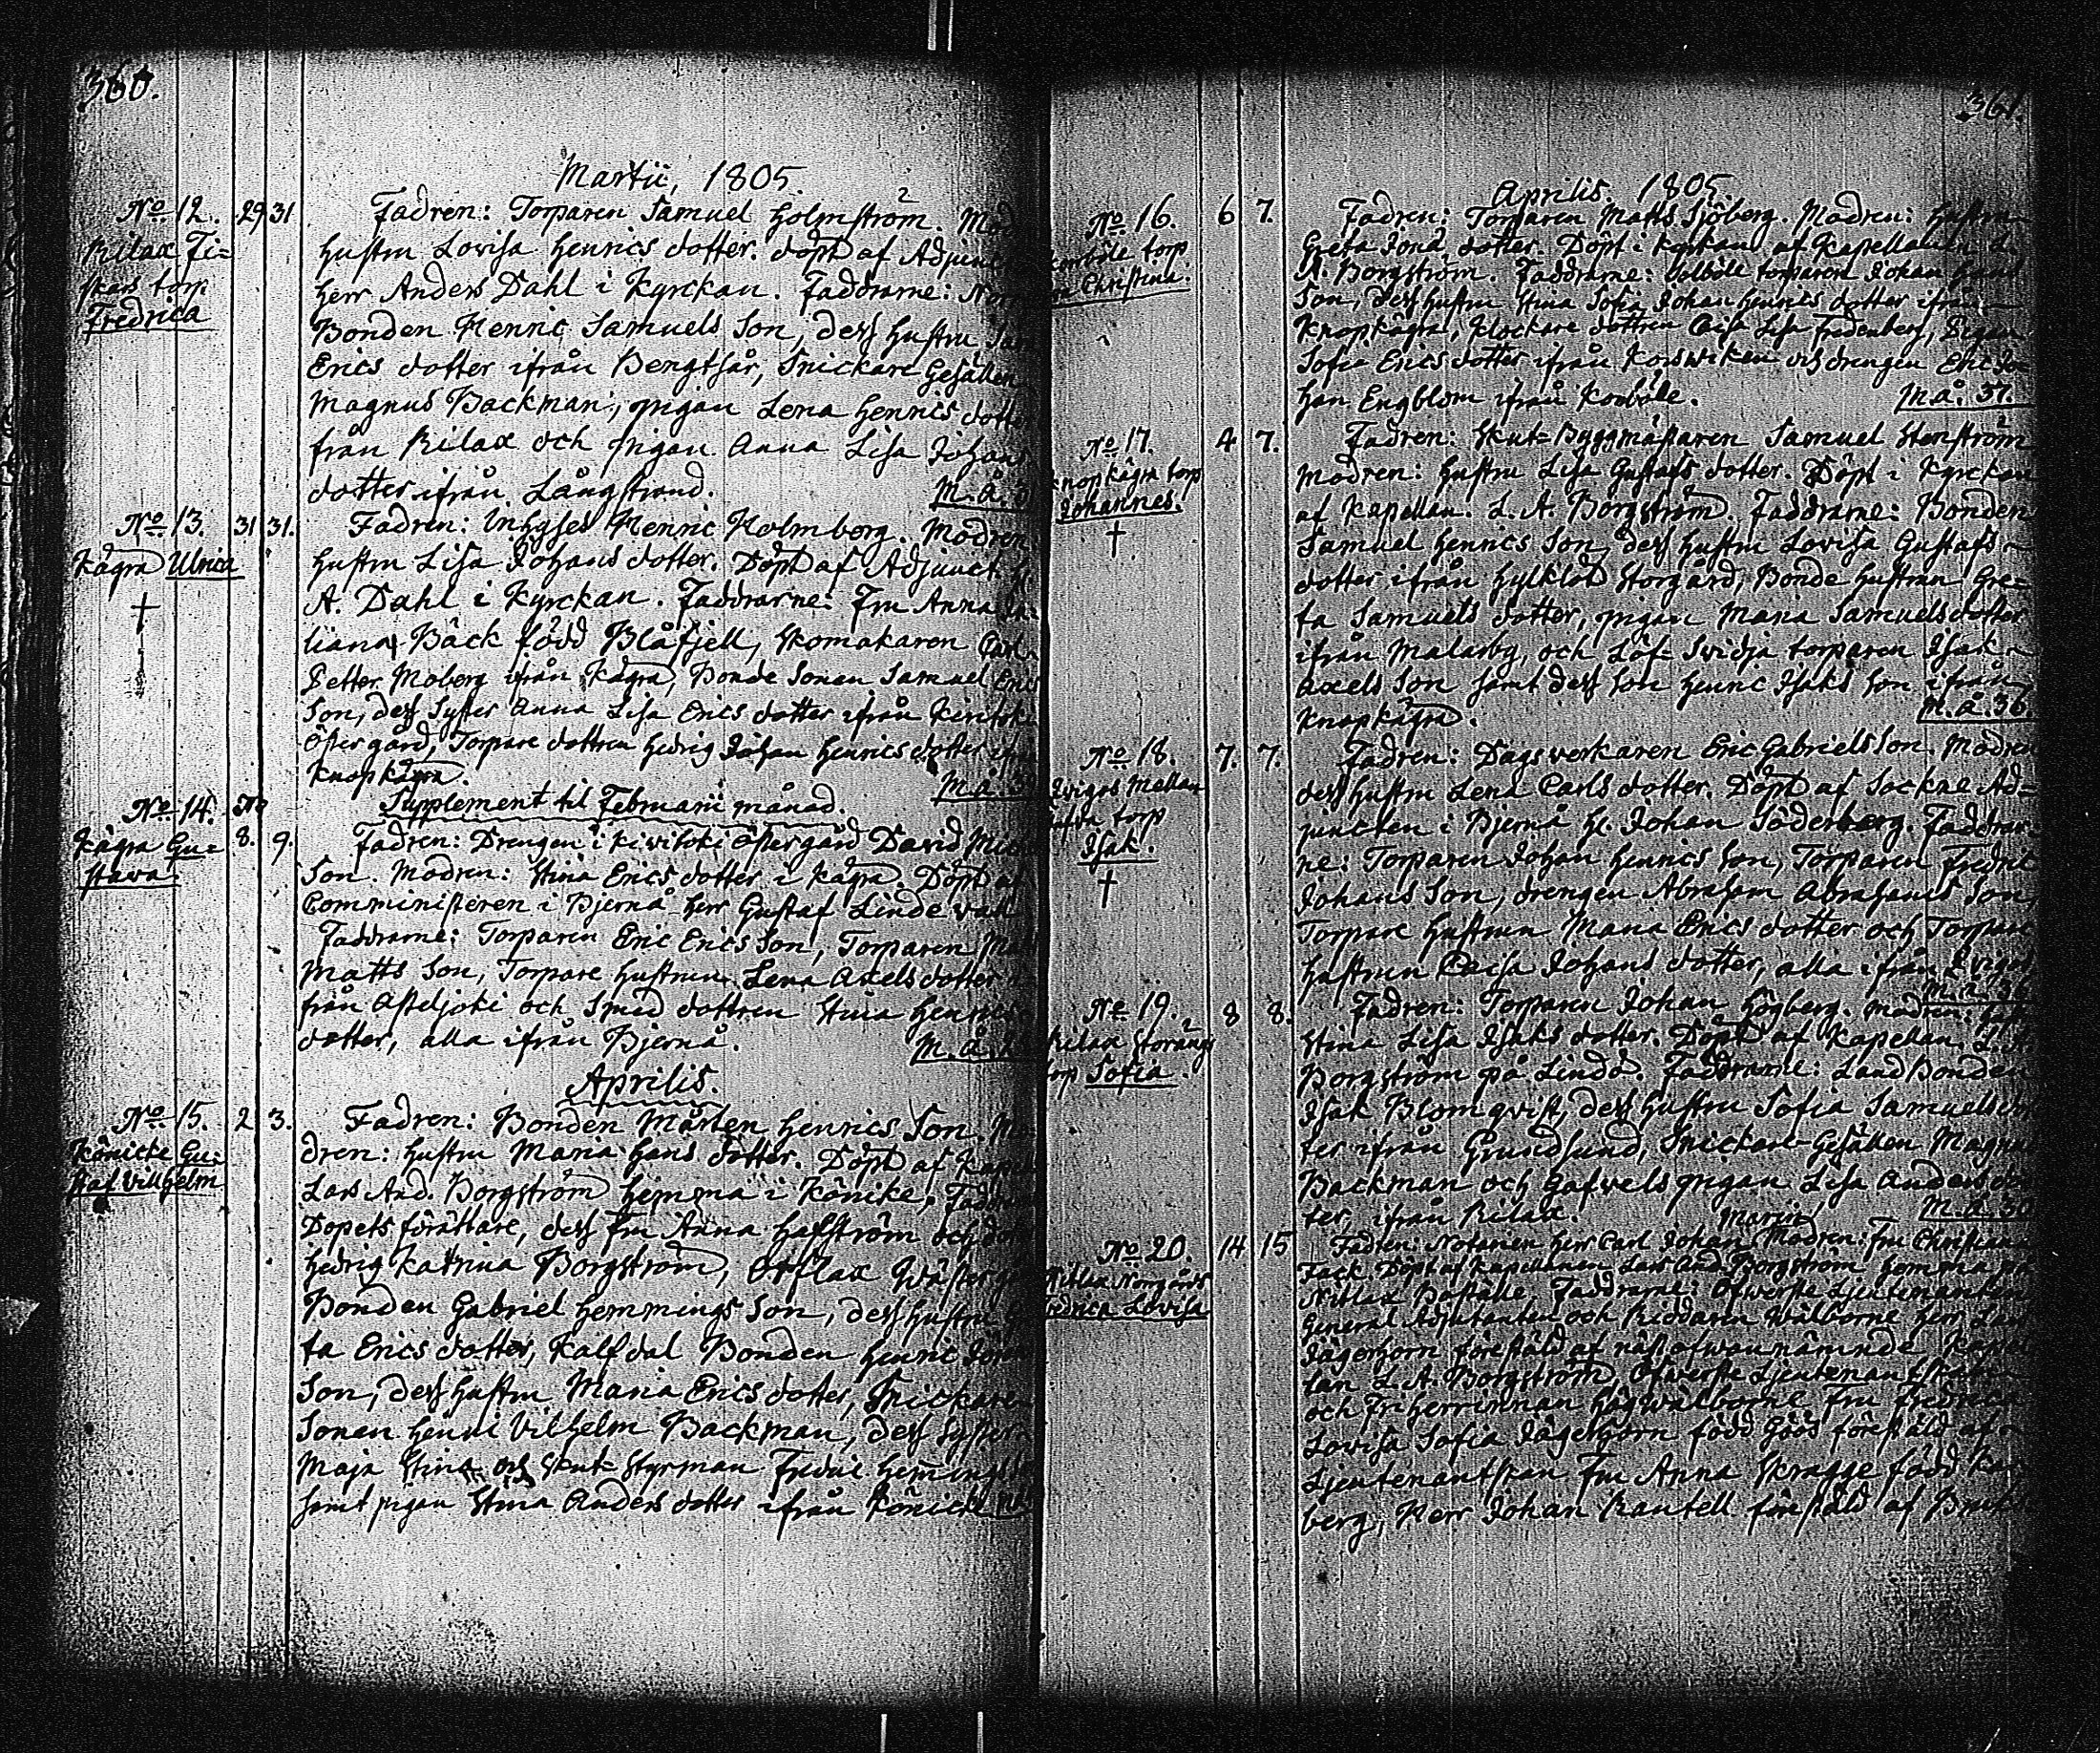 360.
Martii, 1805.
No 12. 29 31 Fadren: Torparen Samuel Holmström. Mod
Rilax Fi= hustru Lovisa Henrics dotter. döpt af Adjunct
skars torp Herr Anders Dahl i Kyrckan. Faddrarne:
Fredrica Bonden Henric Samuels Son, dess hustru
Erics dotter ifrån Bengtsår, Snickare Gesällen
Magnus Backman, pigan Lena Henrics dotter
från Rilax och pigan Anna Lisa Johans
dotter ifrån Långstrand. M. å.
No 13. 31 31. Fadren: Inhyses Henric Holmberg. Modren
Kågra Ulrica hustru Lisa Johans dotter. Döpt af Adjunct. H.
† A. Dahl i Kyrckan. Faddrarne: Fru Anna
liana Bäck född Blåfjell, Skomakaren Carl
Petter Moberg ifrån Kågra, Bonde Sonen Samuel Erics
Son, dess Syster Anna Lisa Erics dotter ifrån
Östergård, Torpare dottren Hedvig Johan Henrics dotter ifrån
Knopkågra. M. å. 3
No 14. Supplement til Februarii månad.
Kågra Gu= 8. 9. Fadren: Drengen i Kiwitoki Östergård David Mich
stava. Son. Modren: Stina Erics dotter i Kågra. Döpt af
Comministeren i Bjernå Herr Gustaf Lindewall
Faddrarne: Torparen Eric Erics Son, Torparen
Matts Son, Torpare hustrun Lena Axels dotter
från och Smed dottren Stina Henrics
dotter, alla ifrån Bjernå. M. å.
Aprilis.
No 15. 2 3. Fadren: Bonden Mårten Henrics Son. Mo
Könicke Gu= dren: hustru Maria Hans dotter. Döpt af Kapell
staf Villhelm Lars And. Borgström hemma i Könike, Faddrar
Dopets förättare, dess Fru Anna Hafström och dot
Hedvig Katrina Borgström, Westergårds
Bonden Gabriel Hemmings Son, dess hustru G
ta Erics dotter, Kalfdal Bonden Henric
Son, dess hustru Maria Erics dotter, Snickare
Sonen Henric Vilhelm Backman, dess Syster
Maja Stina och Skut-Styrman Fredric Hemmings
samt pigan Stina Anders dotter ifrån Könicke
361.
Aprilis. 1805.
No 16. 6 7. Fadren: Torparen Matts Sjöberg. Modren: hustru
torp Greta Jona dotter. Döpt i Kyrkan af Kapellanen L.
Christina. A. Borgström. Faddrarne: torparen Johan
Son, dess hustru Stina Sofia Johan Henrics dotter ifrån
Knopkågra, Klockare dottren Caisa Lisa Fredenberg, Pigan
Sofia Erics dotter ifrån Korswiken och drengen Eric Jo=
han Engblom ifrån Kosböle. M. å. 37.
No 17. 4 7. Fadren: Skut=Byggmästaren Samuel Stenström
Knopkågra torp Modren: hustru Lisa Gustafs dotter. Döpt i Kyrckan
Johannes. af Kapellan. L. A. Borgström Faddrarne: Bonden
† Samuel Henrics Son, dess hustru Lovisa Gustafs
dotter ifrån Storgård, Bonde hustrun Gre=
ta Samuels dotter, pigan Maria Samuels dotter
ifrån Malarby, och Löf=Svidja torparen Isak
Axels Son samt dess Son Henric Isaks Son ifrån
Knopkågra. M. å. 36.
No 18. 7. 7. Fadren: Dagsverkaren Eric Gabriels Son. Modren
Mellan dess hustru Lena Carls dotter. Döpt af Sockne Ad=
torp juncten i Bjernå H. Johan Söderberg. Faddrar=
Isak. ne: Torparen Johan Henrics Son, Torparen Fredric
† Johans Son, drengen Abraham Abrahams Son,
Torpare hustrun Maria Erics dotter och Torpare
hustrun Caisa Johans dotter, alla ifrån
M. å. 3
No 19. 8 8. Fadren: Torparen Johan Högberg. Modren: hustru
Rilax Storängs Stina Lisa Isaks dotter. Döpt af Kapellan. L. A.
torp Sofia. Borgström på Lindö. Faddrarne: Land Bonden
Isak Blomqvist, dess hustru Sofia Samuels dot
ter ifrån Grundsund, Snickare-Gesällen Magnus
Backman och Gafvels pigan Lisa Anders dot
ter, ifrån Rilax. M. å. 30
No 20. 14 15 Fadren: Notarien Herr Carl Johan Modren: Fru Christiana
Norrgårds Fack. Döpt af Kapellanen Lars And. Borgström hemma på
Fredrica Lovisa Boställe. Faddrarne: Öfwerste Lieutenanten
General Adjutanten och Riddaren Wälborne Herr
Jägerhorn förestäld af näst ofwannämnde Kapel
lan L. A. Borgström, Öfwerste Lieutenantskan
och Friherrinnan Högwälborne Fru Fredrica
Lovisa Sofia Jägerhorn född Göös förestäld af
Ljeutenantskan Fru Anna Skragge född
berg, Herr Johan Rantell förestäld af Bruk